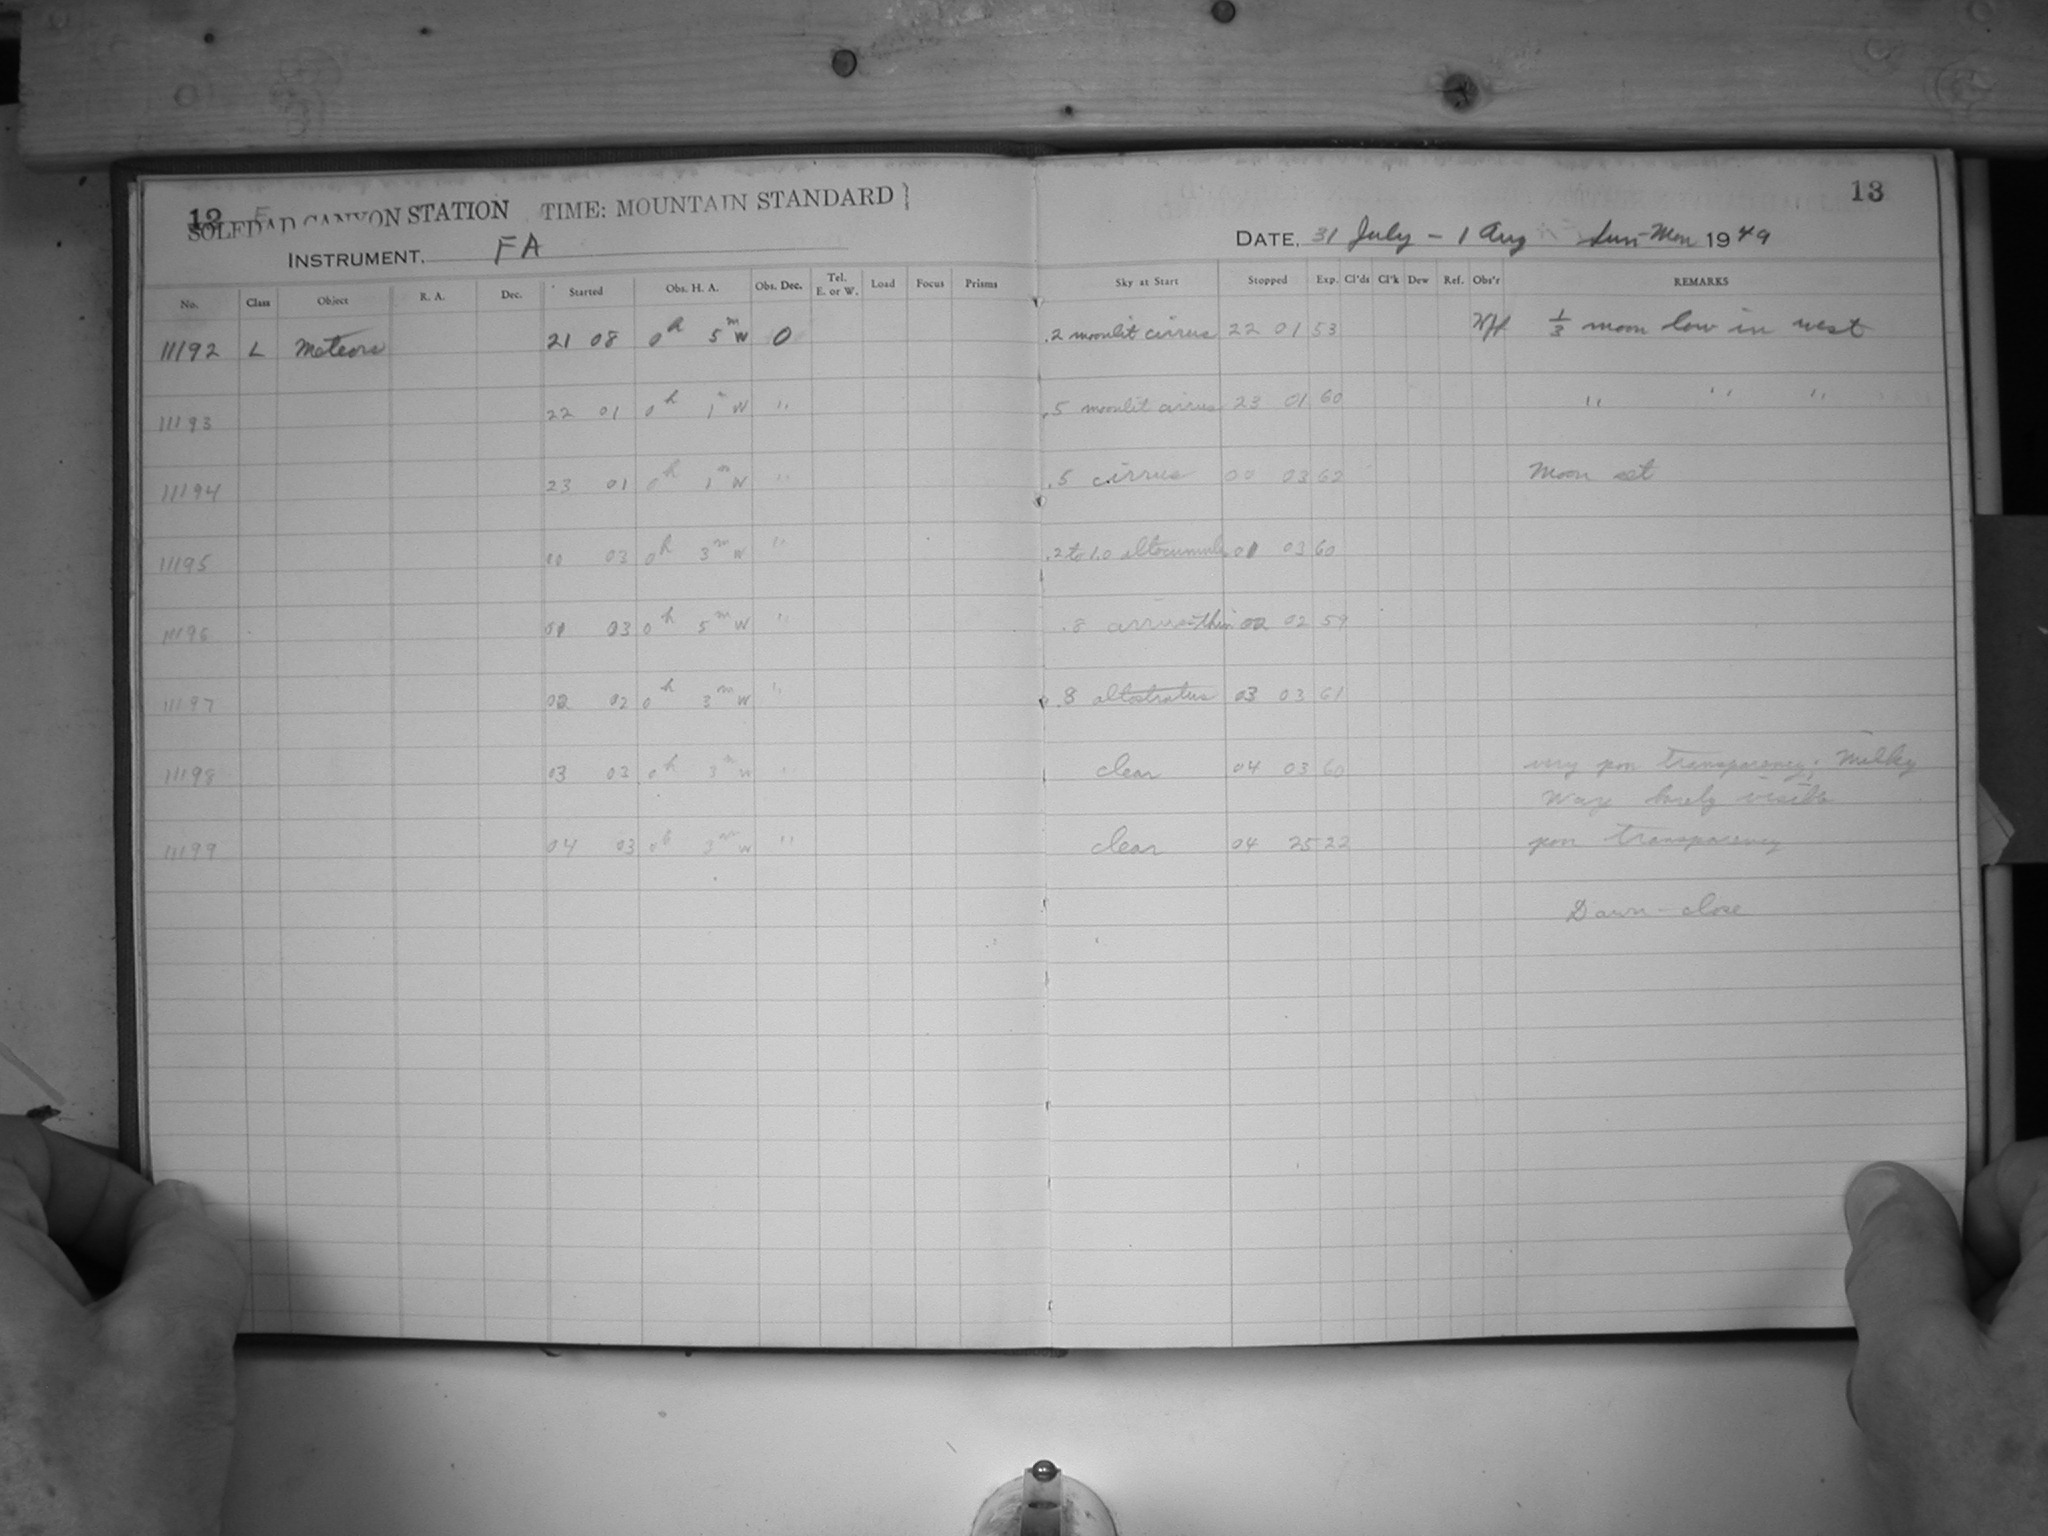 12
SOLEDAD CANYON STATION TIME: MOUNTAIN STANDARD
INSTRUMENT. FA
No. Class Object R. A. Dec. Started Obs. H. A. Obs. Dec. Tel. E. or W. Load Focus Prisms
11192 L Meteors 21 08 0h 5m W 0
11193 22 01 0h 1m W "
11194 23 01 0h 1m W "
11195 00 03 0h 3m W "
11196 01 03 0h 5m W "
11197 02 02 0h 3m W "
11198 03 03 0h 3m W "
11199 04 03 0h 3m W "
13
DATE. 31 July - 1 Aug Sun-Mon 1949
Sky at Start Stopped Exp. Cl'ds Cl'k Dew Ref. Obs'r REMARKS
.2 moonlit cirrus 22 01 53 1/3 moon low in west
.5 moonlit cirrus 23 01 60 " " "
.5 cirrus 00 03 62 Moon set
.2 to 1.0 altocumulus 01 03 60
.8 cirrus-thin 02 02 59
.8 altostratus 03 03 61
clear 04 03 60 very poor transparency; Milky
Way barely visible
clear 04 25 22 poor transparency
Dawn - close